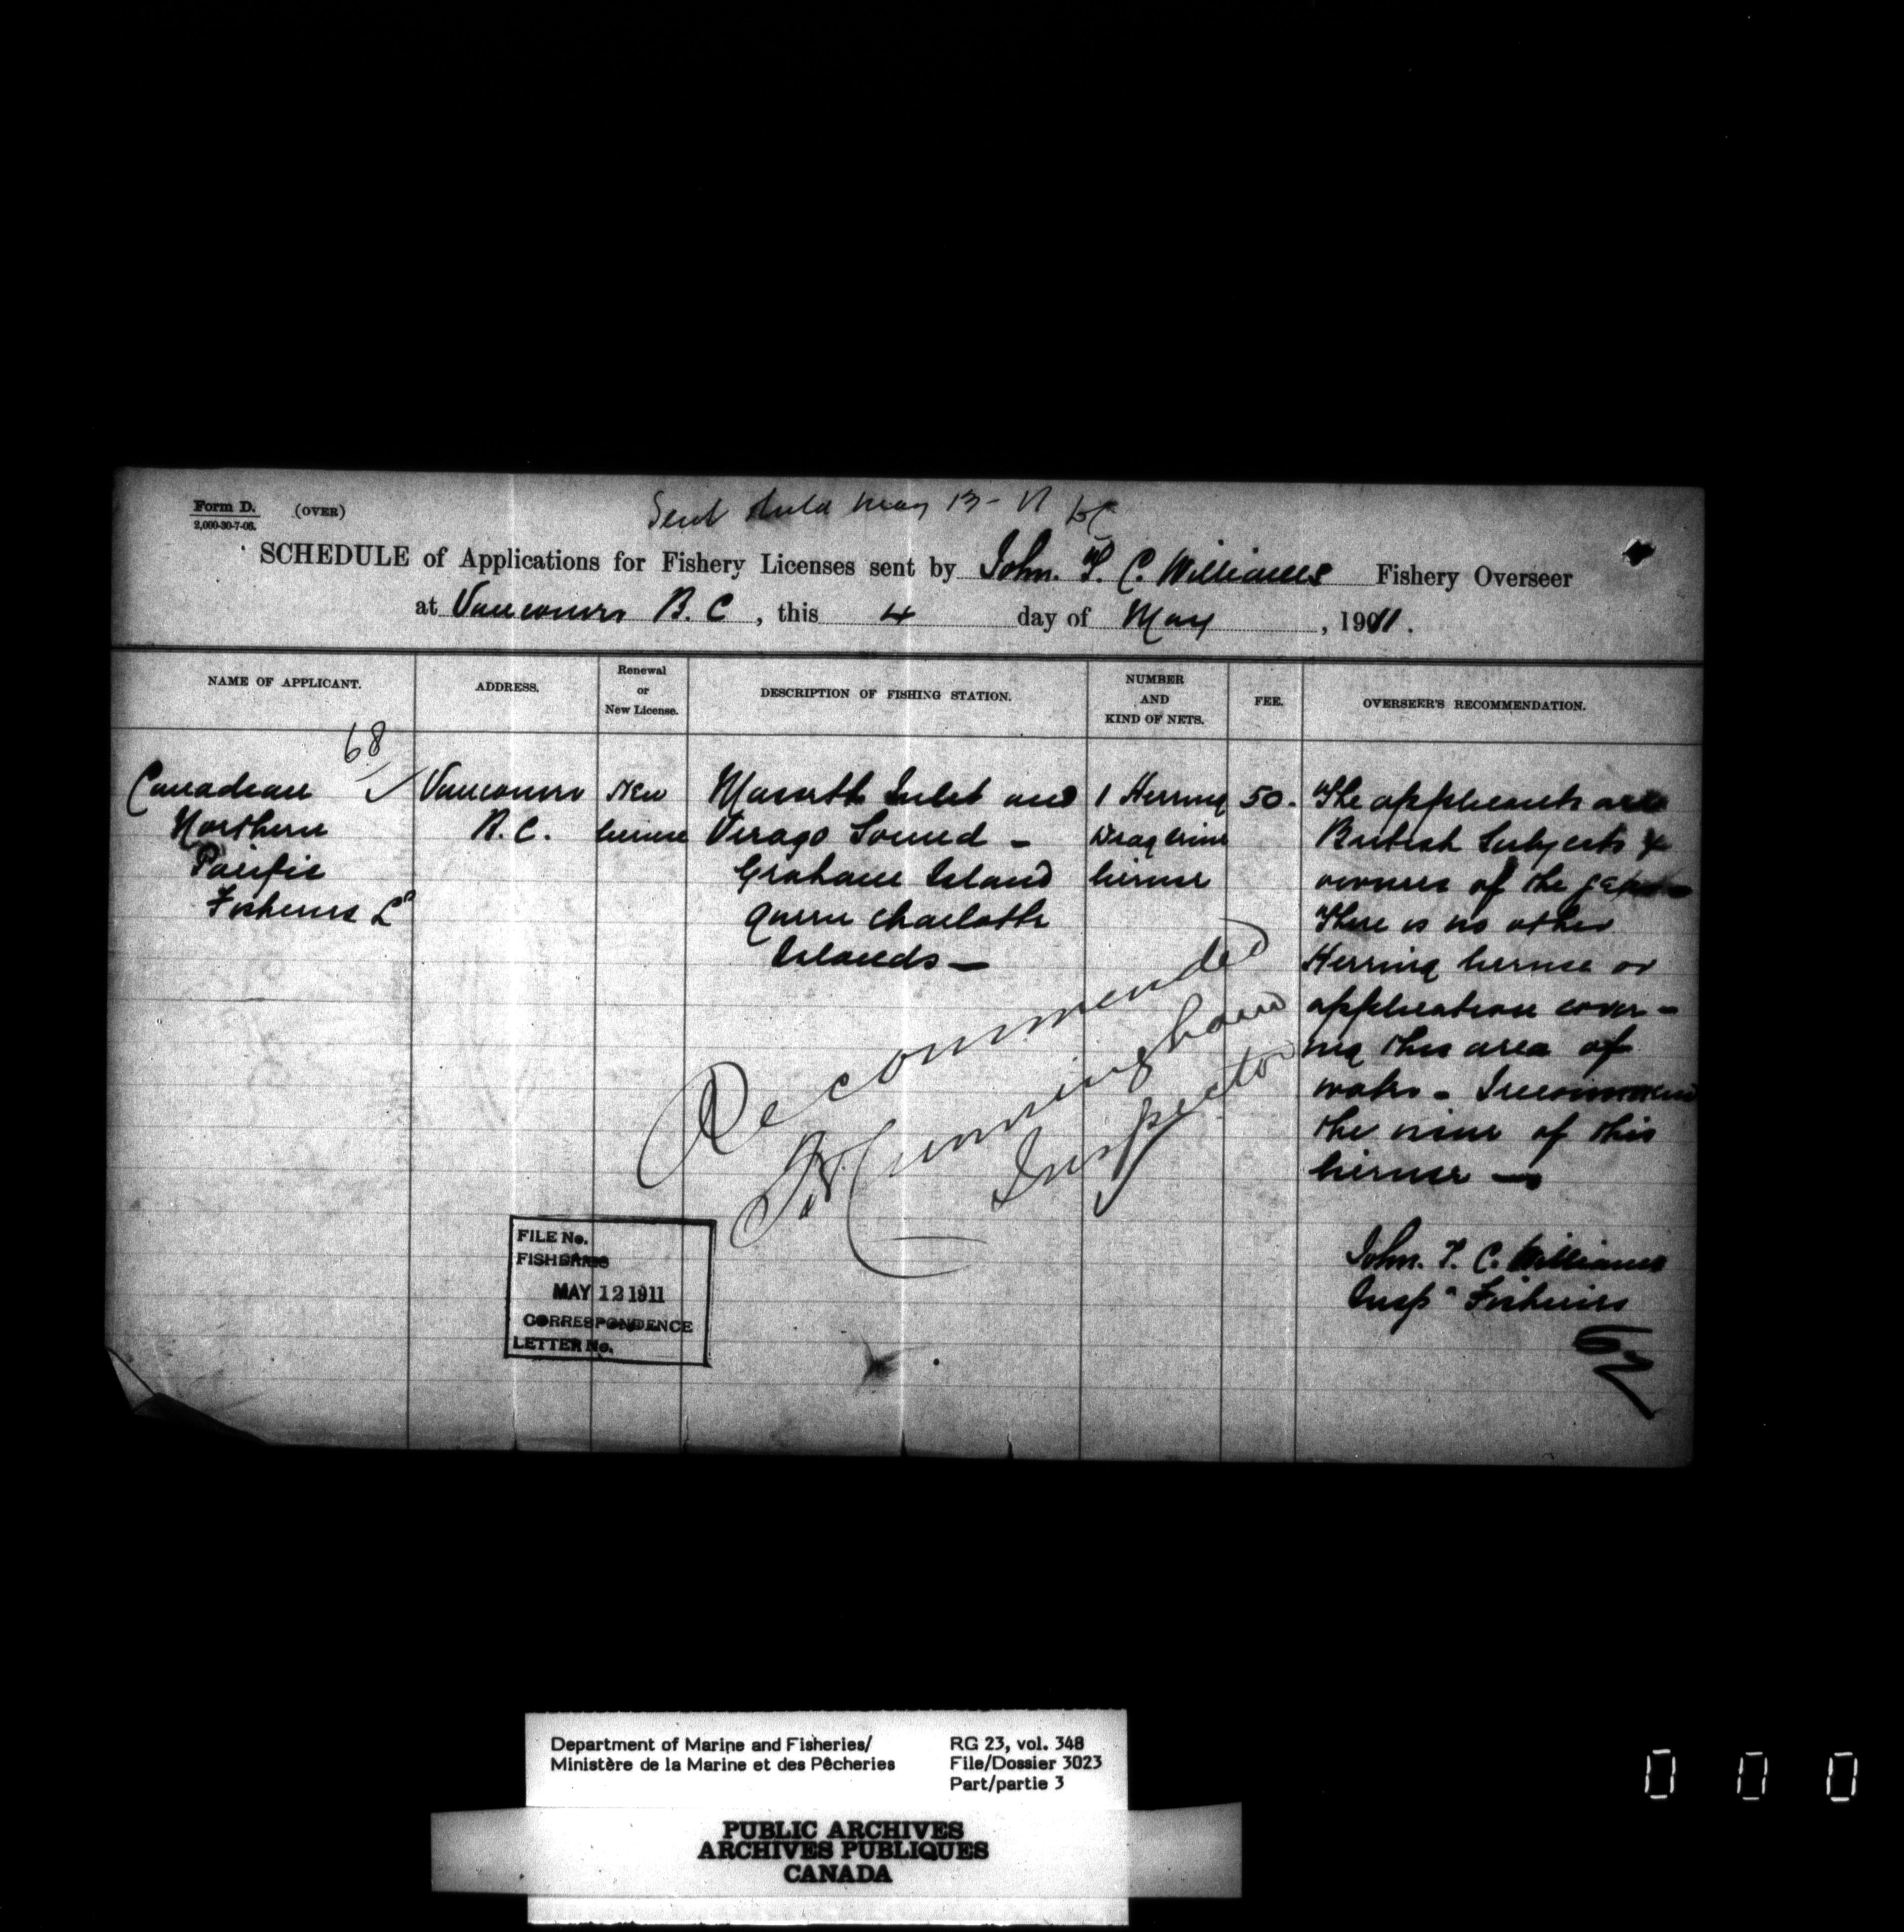 Form D. (OVER)
2,000-30-7-06.
Sent May 13-11
SCHEDULE of Applications for Fishery Licenses sent by John. T. C. Williams Fishery Overseer
at Vancouver B. C, this 4 day of May, 1911.
NAME OF APPLICANT. ADDRESS. Renewal or New License. DESCRIPTION OF FISHING STATION. NUMBER AND KIND OF NETS. FEE. OVERSEER'S RECOMMENDATION.
68
Canadian Vancouver New Massett Inlet and 1 Herring 50. The applicants are
Northern B. C. license Virago Sound - Drag seine British Subjects &
Pacific Graham Island license owners of the gear
Fisheries Ld Queen Charlotte There is no other
Islands - Herring license or
application cover-
ing this area of
water - I recommend
the issue of this
license -
Recommended
Cunningham
Inspector
John. T. C. Williams
Insp r Fisheries
FILE No.
FISHERIES
MAY 12 1911
CORRESPONDENCE
LETTER No.
Department of Marine and Fisheries/
Ministère de la Marine et des Pêcheries
RG 23, vol. 348
File/Dossier 3023
Part/partie 3
PUBLIC ARCHIVES
ARCHIVES PUBLIQUES
CANADA
0 0 0